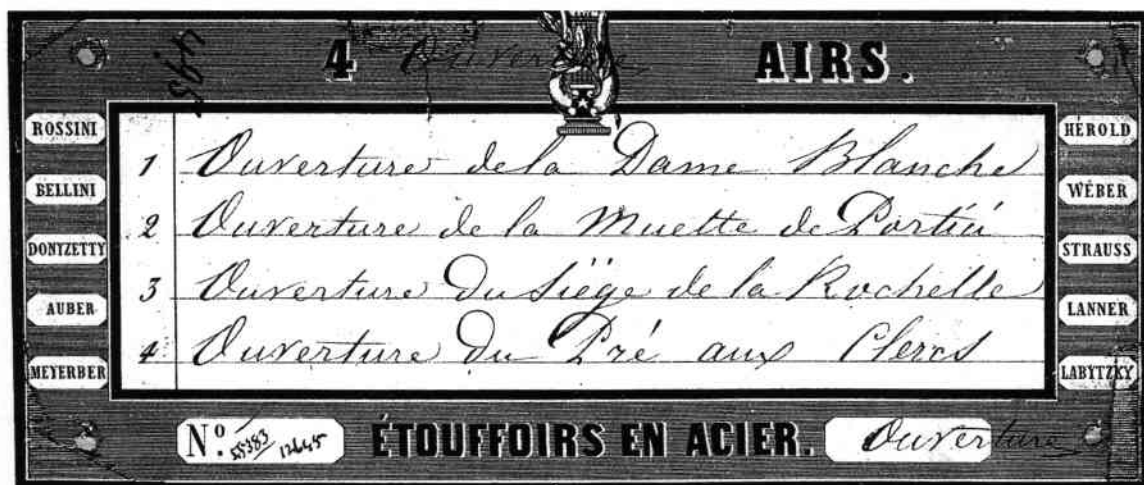 4 Ouverture AIRS.
ROSSINI
BELLINI
DONIZETTY
AUBER
MEYERBER
1 Ouverture de la Dame Blanche
2 Ouverture de la Muette de Portici
3 Ouverture du Siège de la Rochelle
4 Ouverture du Pré aux Clercs
HÉROLD
WÉBER
STRAUSS
LANNER
LABYTZKY
N°. 55383/12645
ÉTOUFFOIRS EN ACIER.
Ouverture